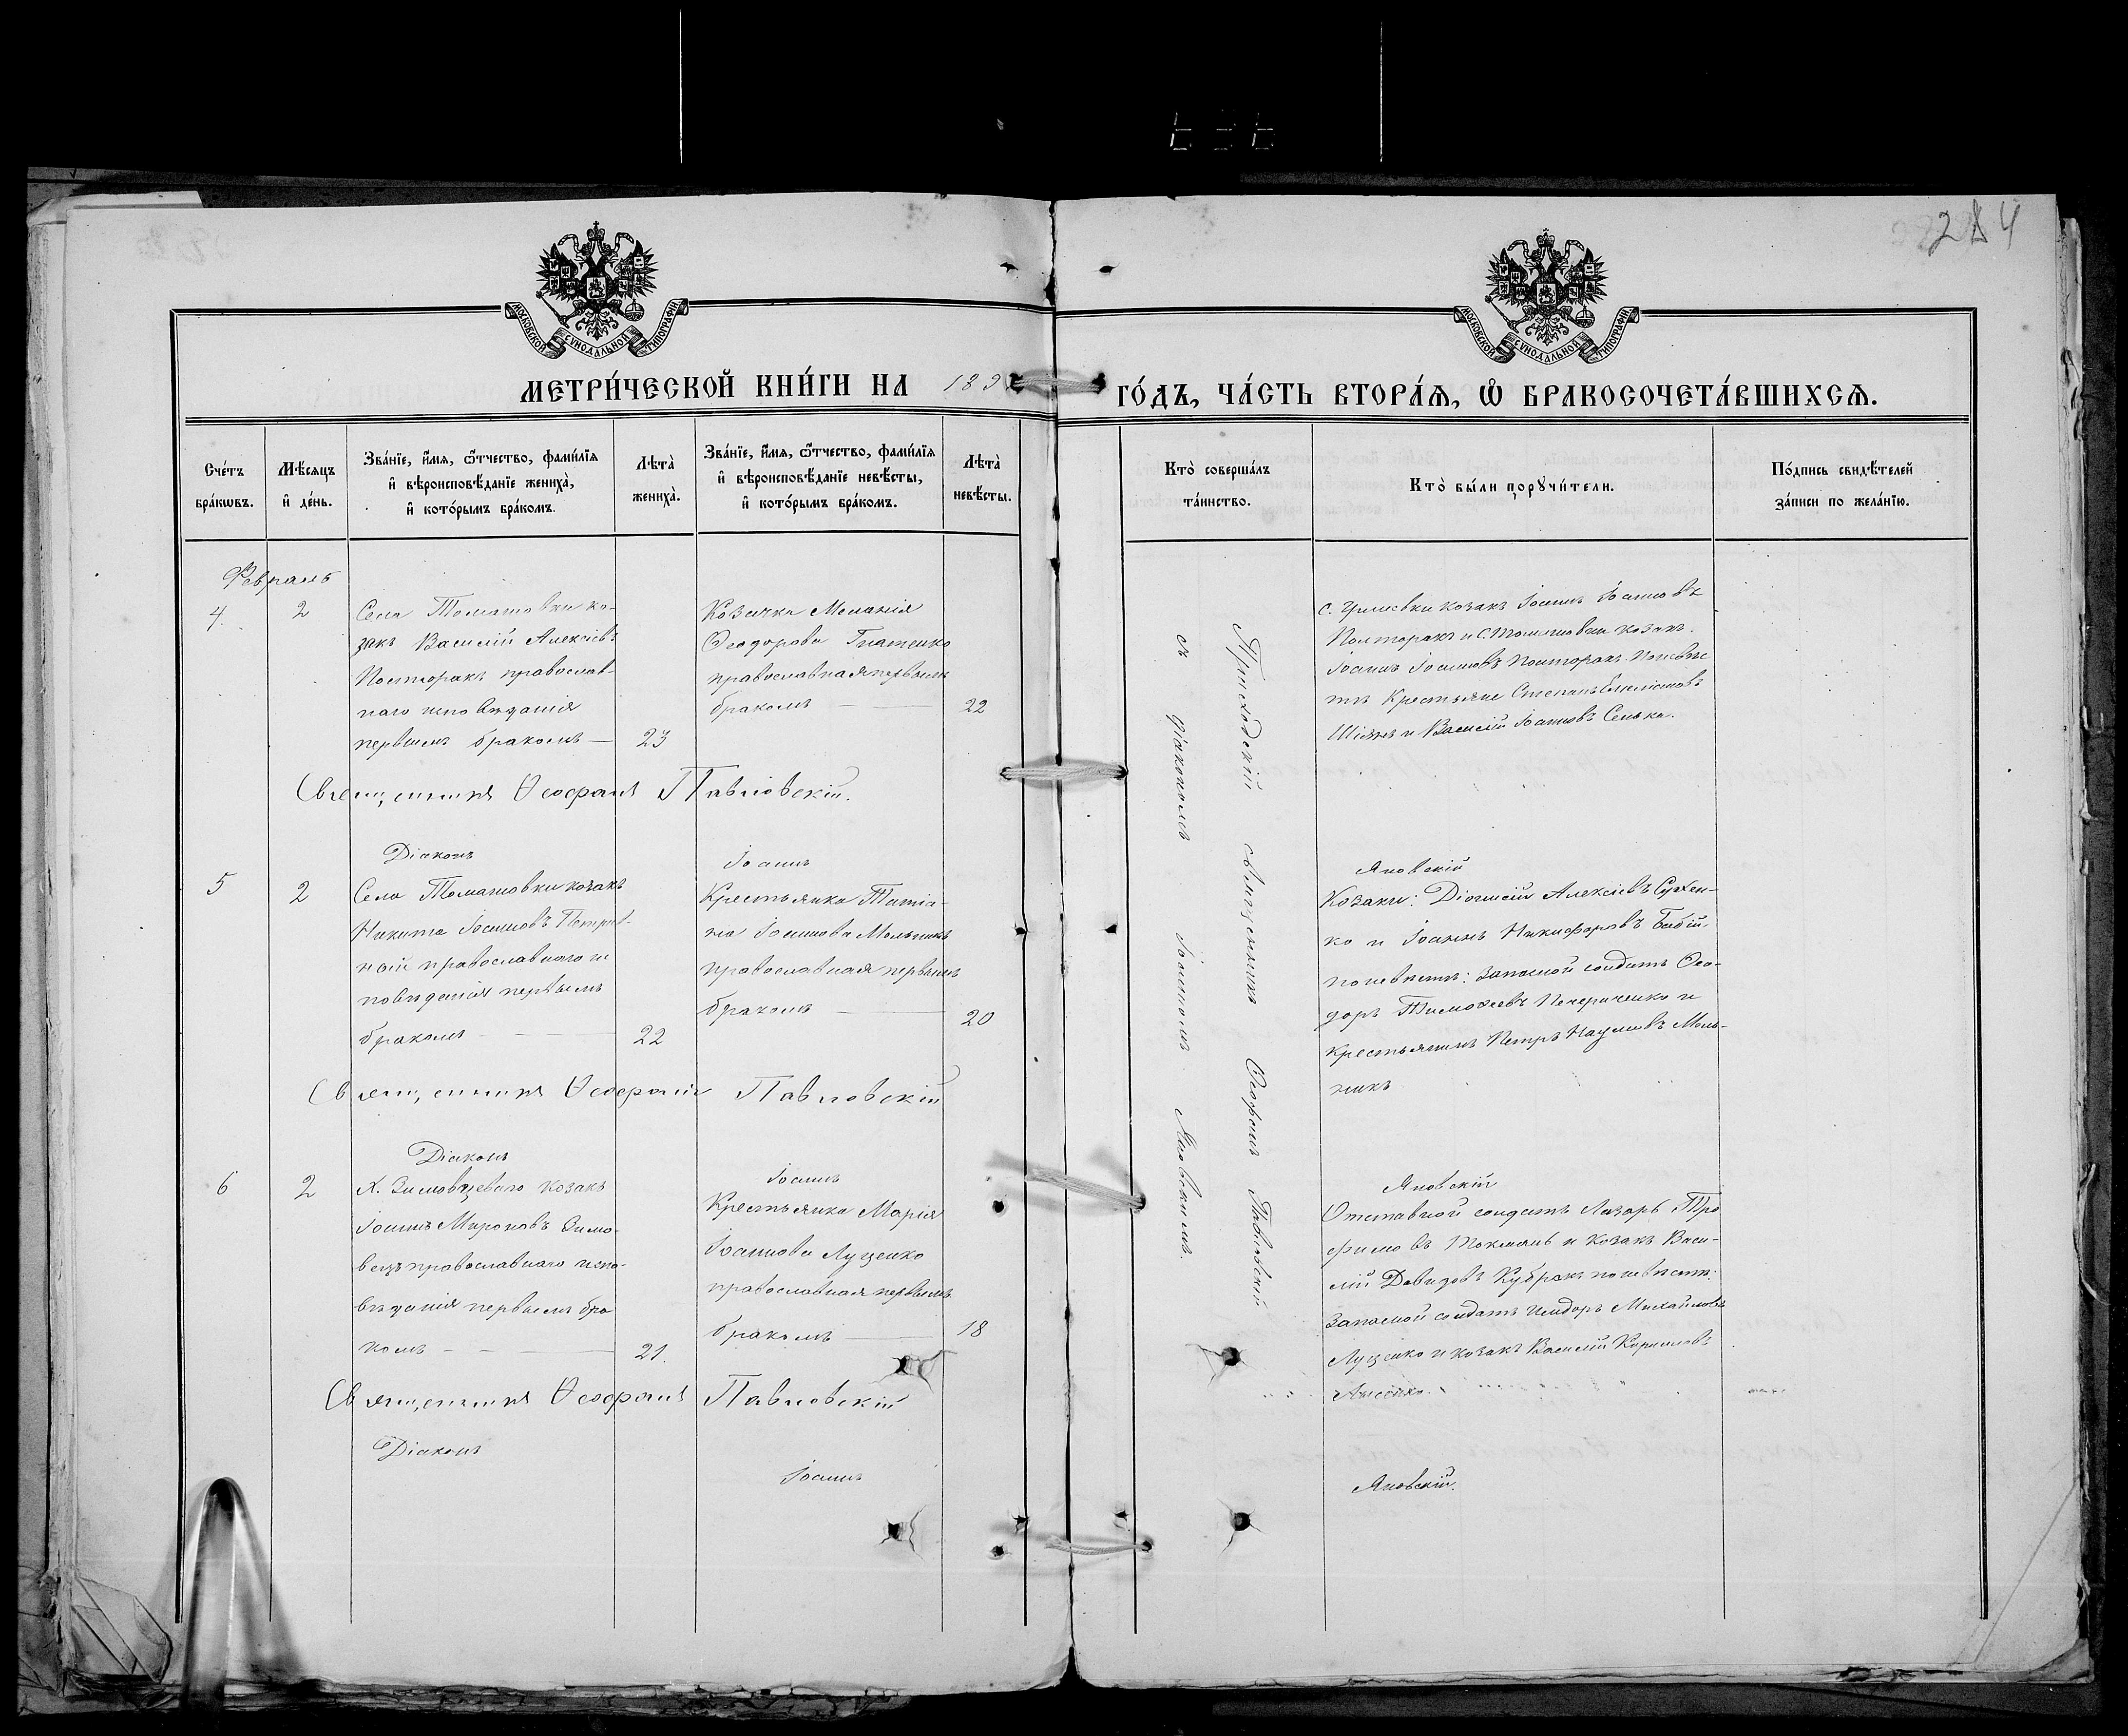 284
МОСКОВСКОЙ СѴНОДАЛЬНОЙ ТИПОГРАФІИ
МОСКОВСКОЙ СѴНОДАЛЬНОЙ ТИПОГРАФІИ
МЕТРИ́ЧЕСКОЙ КНИ́ГИ НА 189
ГО́ДЪ, ЧА́СТЬ ВТОРА́Ѧ, Ѽ БРАКОСОЧЕТА́ВШИХСѦ.
Сче́тъ
бра́кѡвъ.
Мѣ́сяцъ
и҆ де́нь.
Зва́нїе, и҆́мѧ, ѻ҆́тчество, фами́лїѧ
и҆ вѣроисповѣ́данїе жениха̀,
и҆ кото́рымъ бра́комъ.
Лѣта̀
жениха̀.
Зва́нїе, и҆́мѧ, ѻ҆́тчество, фами́лїѧ
и҆ вѣроисповѣ́данїе невѣ́сты,
и҆ кото́рымъ бра́комъ.
Лѣта̀
невѣ́сты.
Кто̀ соверша́лъ
та́инство.
Кто̀ бы́ли порꙋчи́тели.
По́дпись свидѣ́телей
за́писи по жела́нїю.
Февраль
4.
2
Села Томашовки ко-
закъ Василій Алексіевъ
Полторакъ православ-
наго исповѣданія
первымъ бракомъ —
23
Козачка Меланія
Ѳеодорова Гнатенко
православная первымъ
бракомъ —
22
козакъ Іоаннъ Іоанновъ
Полторакъ и с. Томашовки козакъ
Іоаннъ Іоанновъ Полторакъ. По невѣс
тѣ Крестьяне Степанъ
и Василій Іоанновъ
Священникъ Ѳеофанъ Павловскій.
Діаконъ
Іоаннъ
Яновскій
5
2
Села Томашовки козакъ
Никита Іоанновъ
православнаго ис
повѣданія первымъ
бракомъ —
22
Крестьянка Татіа-
на Іоаннова Мольникъ
православная первымъ
бракомъ —
20
Козаки: Діонисій Алексіевъ
ко и Іоаннъ Никифоровъ Бабій.
по невѣстѣ: Запасной солдатъ Ѳео-
доръ Тимоѳеевъ и
крестьянинъ Петръ Наумовъ Моль-
никъ
Священникъ Ѳеофанъ Павловскій
Діаконъ
Іоаннъ
Яновскій
6
2
Х. Зимовцеваго козакъ
Іоаннъ Мироновъ Зимо-
вецъ православнаго испо-
вѣданія первымъ бра
комъ —
21.
Крестьянка Марія
Іоаннова Луценко
православная первымъ
бракомъ —
18
Отставной солдатъ Лазарь Тро
фимовъ Токмань и козакъ Васи-
лій Давидовъ Кубракъ по невѣстѣ:
Запасной солдатъ Исидоръ Михайловъ
Луценко и козакъ Василій Кириловъ
Священникъ Ѳеофанъ Павловскій
Діаконъ
Іоаннъ
Яновскій.
Приходскій священникъ Ѳеофанъ Павловскій
съ діакономъ Іоанномъ Яновскимъ.